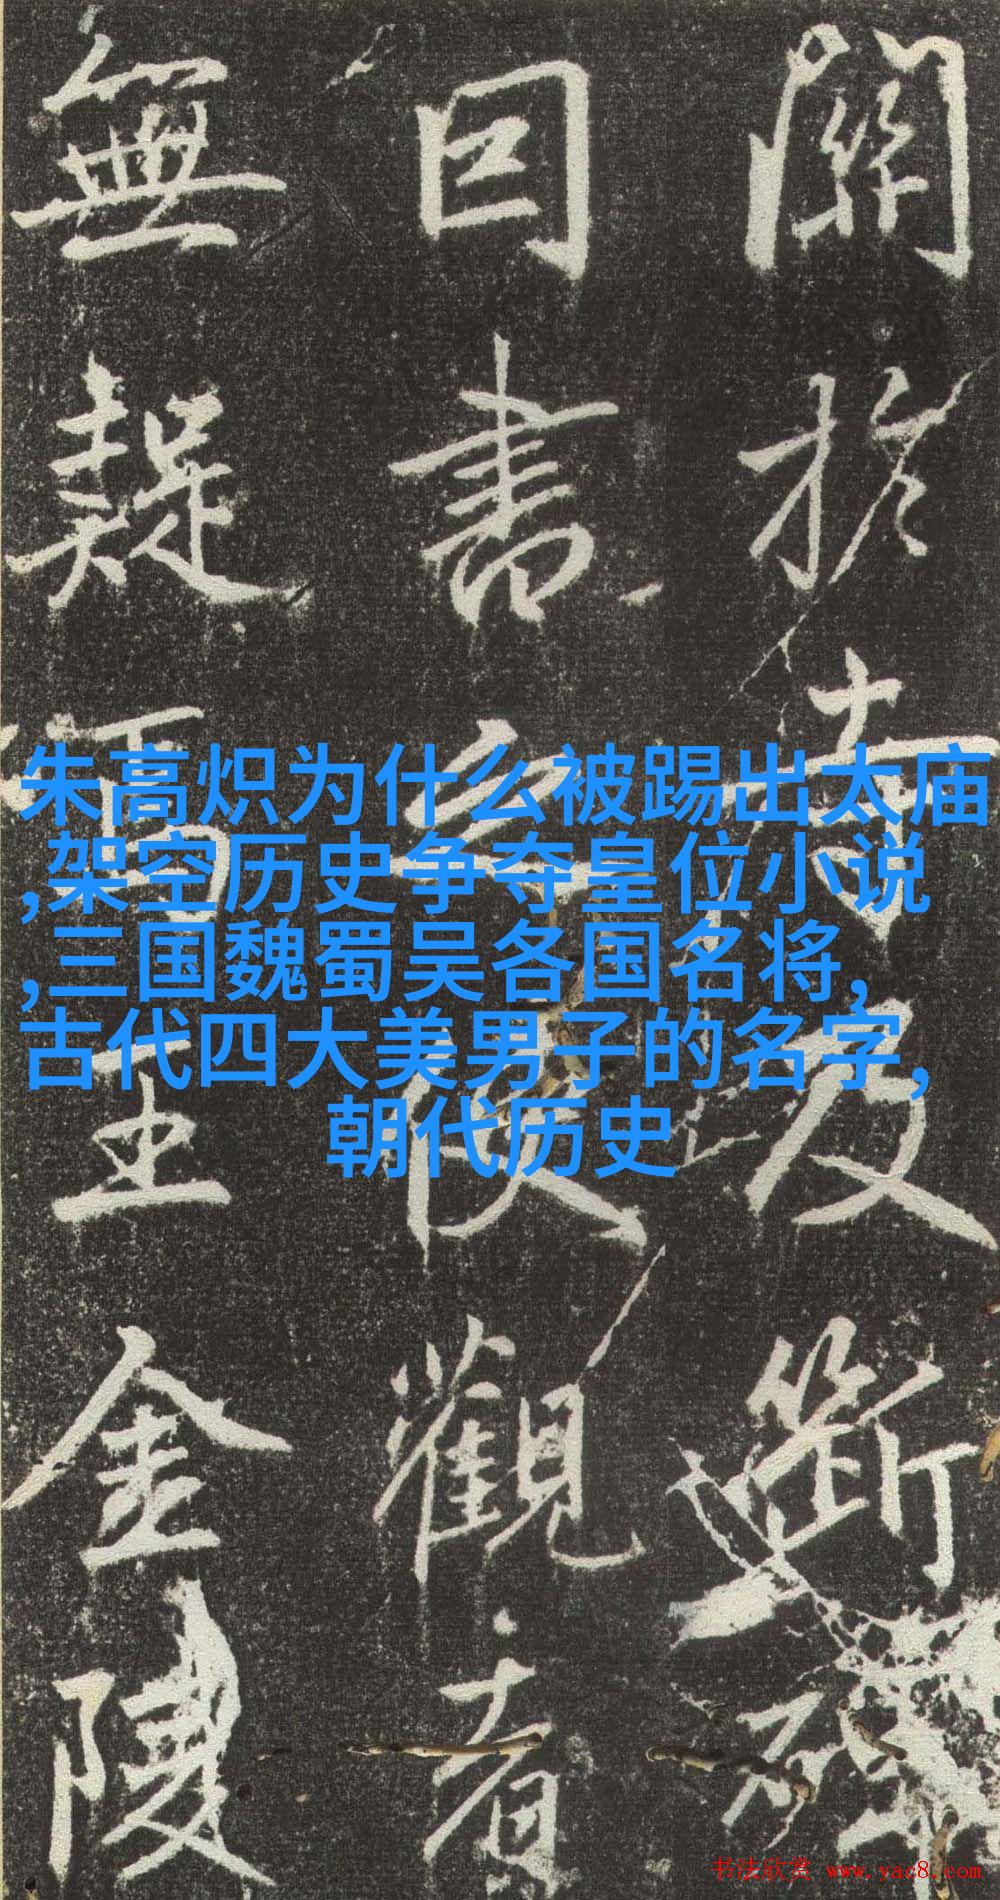 關於右及斷碑
日書之後觀者
無疑焉王金陵
朱高炽为什么被踢出太庙
,架空历史争夺皇位小说
,三国魏蜀吴各国名将,
古代四大美男子的名字,
朝代历史
书法欣赏 www.yac8.com